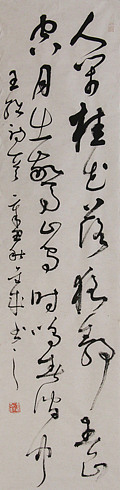 人闲桂花落夜静春山
空月出惊山鸟时鸣春涧中
王维诗